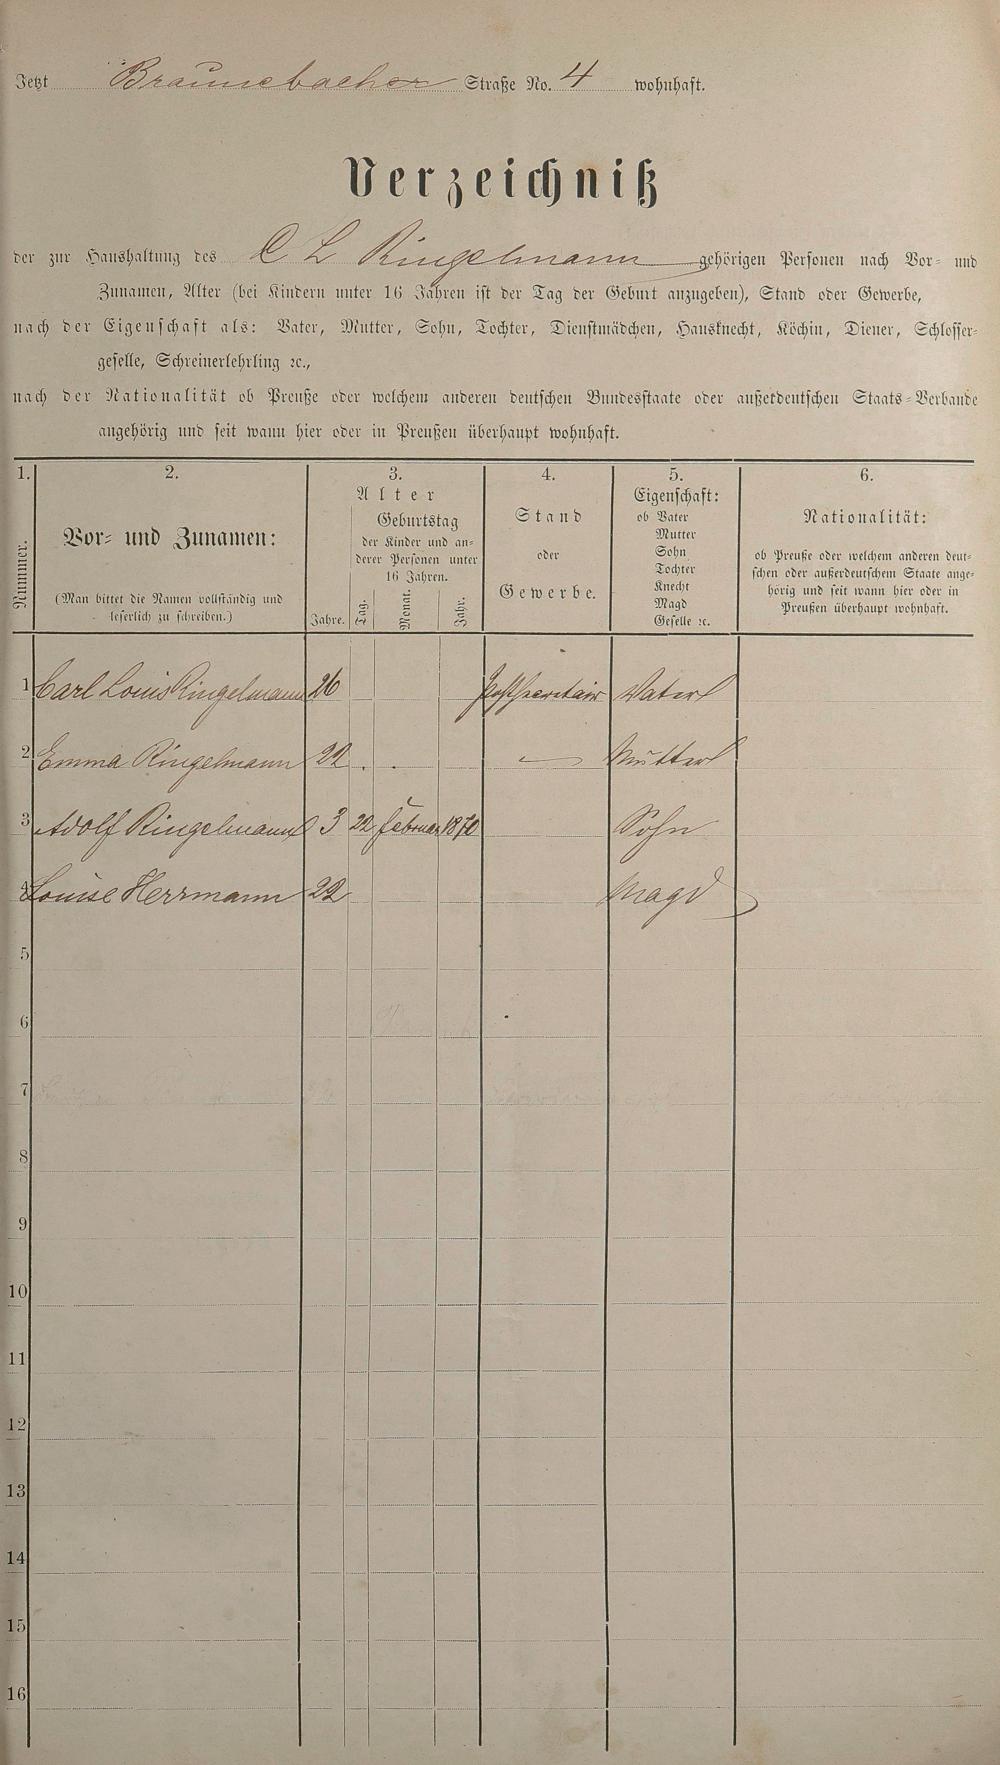 Jetzt Braunebacher Straße No. 4 wohnhaft.
Verzeichniß
der zur Haushaltung des C L Ringelmann gehörigen Personen nach Vor- und
Zunamen, Alter (bei Kindern unter 16 Jahren ist der Tag der Geburt anzugeben), Stand oder Gewerbe,
nach der Eigenschaft als: Vater, Mutter, Sohn, Tochter, Dienstmädchen, Hausknecht, Köchin, Diener, Schlosser-
geselle, Schreinerlehrling ꝛc.,
nach der Nationalität ob Preuße oder welchem anderen deutschen Bundesstaate oder außerdeutschen Staats-Verbande
angehörig und seit wann hier oder in Preußen überhaupt wohnhaft.
1.
Nummer.
2.
Vor- und Zunamen:
(Man bittet die Namen vollständig und
leserlich zu schreiben.)
3.
Alter
Jahre.
Geburtstag
der Kinder und an-
derer Personen unter
16 Jahren.
Tag.
Monat.
Jahr.
4.
Stand
oder
Gewerbe.
5.
Eigenschaft:
ob Vater
Mutter
Sohn
Tochter
Knecht
Magd
Geselle ꝛc.
6.
Nationalität:
ob Preuße oder welchem anderen deut-
schen oder außerdeutschem Staate ange-
hörig und seit wann hier oder in
Preußen überhaupt wohnhaft.
1 Carl Louis Ringelmann 26 Postsecretair Vater
2 Emma Ringelmann 22 — Mutter
3 Adolf Ringelmann 3 22 Februar 1870 Sohn
4 Louise Herrmann 22 Magd
5
6
7
8
9
10
11
12
13
14
15
16